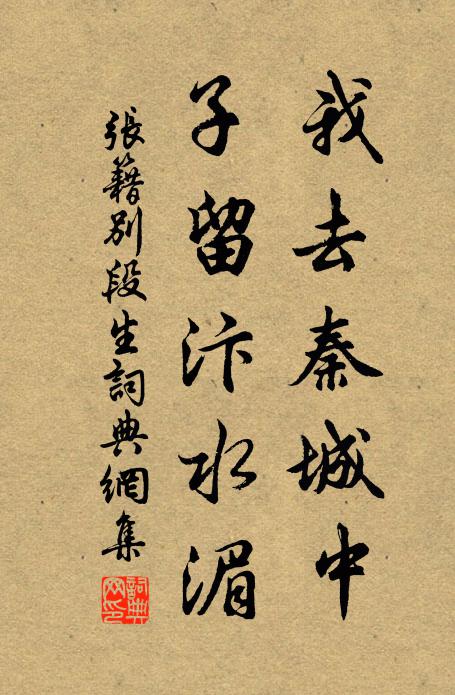 我去秦城中
子留汴水湄
張籍別段生詞典網集
詞典網印